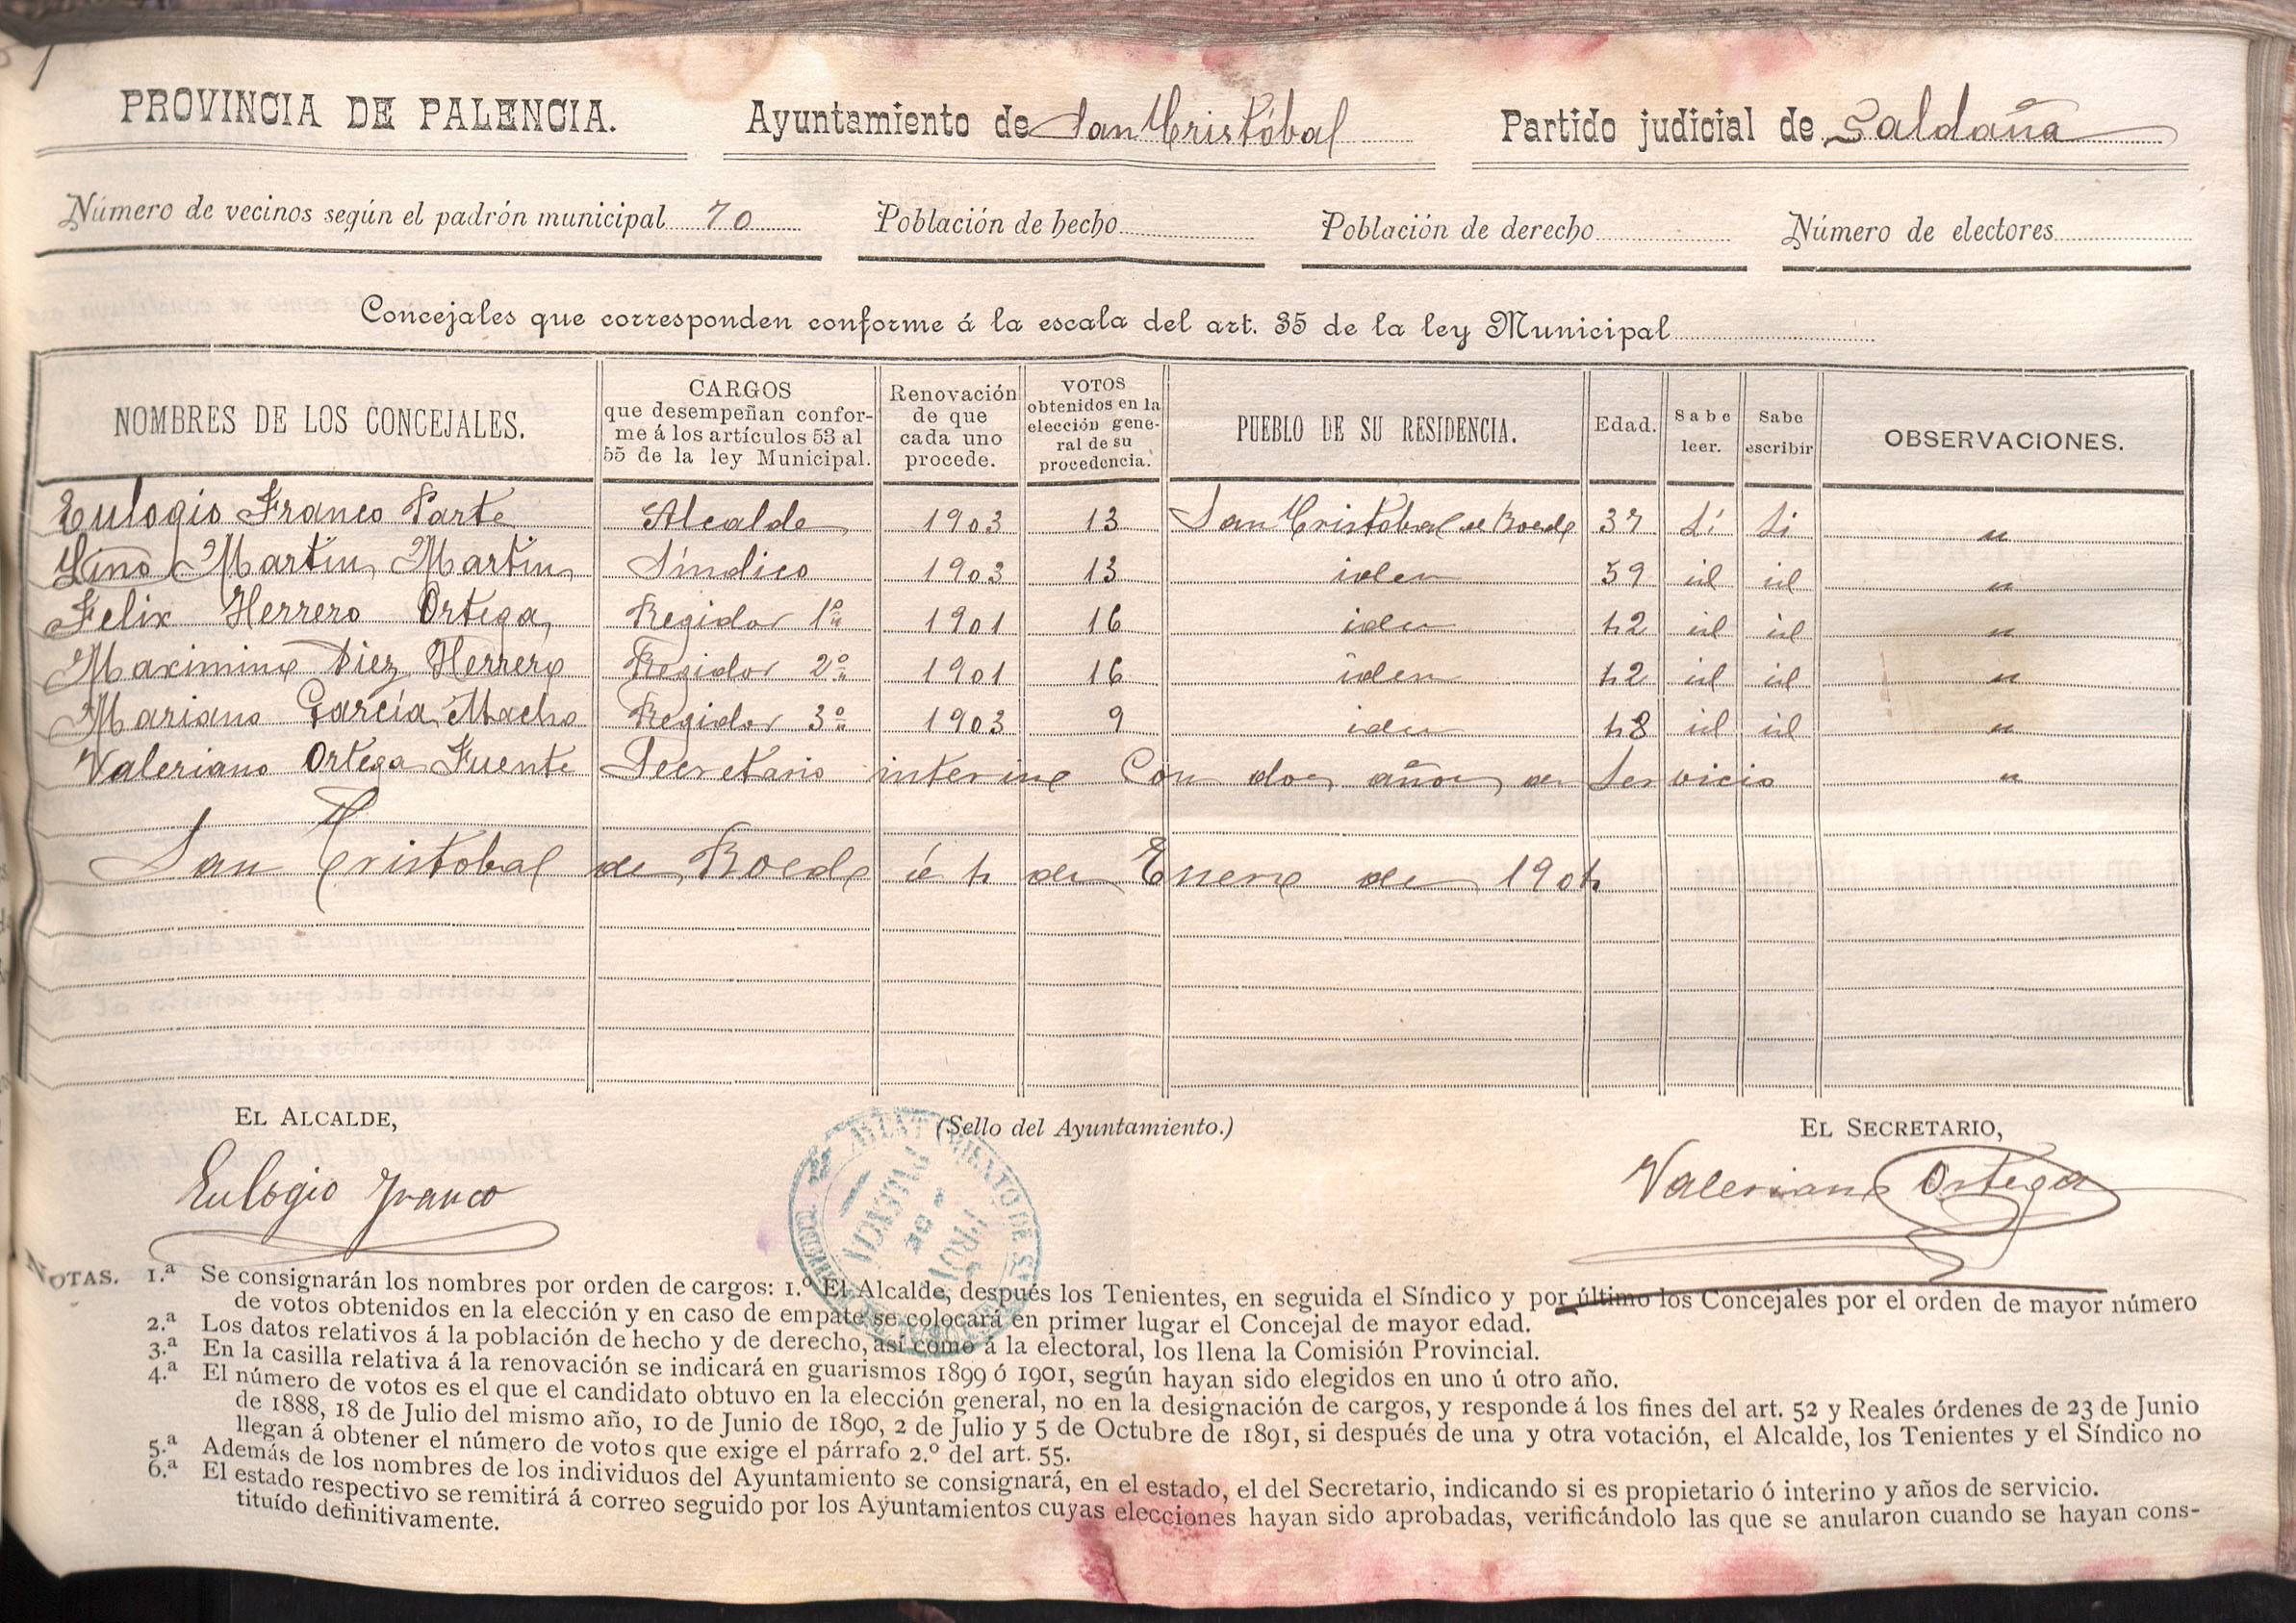 PROVINCIA DE PALENCIA. Ayuntamiento de San Cristóbal Partido judicial de Saldaña
Número de vecinos según el padrón municipal 70 Población de hecho Población de derecho Número de electores
Concejales que corresponden conforme á la escala del art. 35 de la ley Municipal
NOMBRES DE LOS CONCEJALES. CARGOS que desempeñan conforme á los artículos 53 al 55 de la ley Municipal. Renovación de que cada uno procede. VOTOS obtenidos en la elección general de su procedencia. PUEBLO DE SU RESIDENCIA. Edad. Sabe leer. Sabe escribir OBSERVACIONES.
Eulogio Franco Parte Alcalde 1903 13 San Cristobal de Boedo 37 Sí Si "
Lino Martin Martin Síndico 1903 13 idem 59 id id "
Felix Herrero Ortega Regidor 1º 1901 16 idem 42 id id "
Maximino Diez Herrero Regidor 2º 1901 16 idem 42 id id "
Mariano García Macho Regidor 3º 1903 9 idem 48 id id "
Valeriano Ortega Fuente Secretario interino Con dos años de Servicio "
San Cristobal de Boedo á 4 de Enero de 1904
EL ALCALDE, (Sello del Ayuntamiento.) EL SECRETARIO,
Eulogio Franco Valeriano Ortega
AYUNTAMIENTO DE Sn CRISTOBAL
PROVª DE PALENCIA
NOTAS. 1.ª Se consignarán los nombres por orden de cargos: 1.º El Alcalde, después los Tenientes, en seguida el Síndico y por último los Concejales por el orden de mayor número
de votos obtenidos en la elección y en caso de empate se colocará en primer lugar el Concejal de mayor edad.
2.ª Los datos relativos á la población de hecho y de derecho, así como á la electoral, los llena la Comisión Provincial.
3.ª En la casilla relativa á la renovación se indicará en guarismos 1899 ó 1901, según hayan sido elegidos en uno ú otro año.
4.ª El número de votos es el que el candidato obtuvo en la elección general, no en la designación de cargos, y responde á los fines del art. 52 y Reales órdenes de 23 de Junio
de 1888, 18 de Julio del mismo año, 10 de Junio de 1890, 2 de Julio y 5 de Octubre de 1891, si después de una y otra votación, el Alcalde, los Tenientes y el Síndico no
llegan á obtener el número de votos que exige el párrafo 2.º del art. 55.
5.ª Además de los nombres de los individuos del Ayuntamiento se consignará, en el estado, el del Secretario, indicando si es propietario ó interino y años de servicio.
6.ª El estado respectivo se remitirá á correo seguido por los Ayuntamientos cuyas elecciones hayan sido aprobadas, verificándolo las que se anularon cuando se hayan cons-
tituído definitivamente.